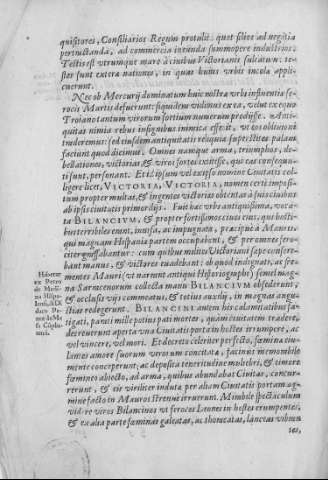 quisitores, Consiliarios Regum protulit: quot solere ad negitia
pertractanda, ad commercia ineunda summopere industrios:
Testis est utrumque mare à ciuibus Victorianis sulcatum: te-
stes sunt exteræ nationes, in quas huius vrbis incolæ appli-
cuerunt.
Nec ob Mercurij dominatum huic nostræ vrbi influentia fe-
rocis Martis defuerunt: siquidem vidimus ex ea, velut ex equo
Troiano tantum virorum fortium numerum prodijsse. Anti-
quitas nimia rebus insignibus inimica
tradiderunt: sed eiusdem antiquitatis reliquiæ superstites palam
faciunt quod dicimus. Omnes namque arma, triumphos, de-
bellationes, victorias & viros fortes extitisse, qui eas consequu-
ti sunt, personant. Et id ipsum vel ex ipso nomine Ciuitatis col-
ligere licet, VICTORIA, VICTORIA, nomen certè imposi-
tum propter multas, & ingentes victorias obtentas à suis ciuibus
ab ipsis ciuitatis primordijs. Fuit hæc vrbs antiquissima, voca-
ta BILANCIVM, & propter fortissimos ciues eius, quos hosti-
bus terribiles erant, inuisa, ac impugnata, præcipuè à Mauris,
qui magnam Hispaniæ partem occupabant, & per omnes fero-
citer grassabantur: cum quibus milites Victoriani sæpe confere-
bant manus, & victores euadebant: ob quod indignati, ac fre-
mentes Mauri (vt narrant antiqui Historiographi) semel mag-
na Sarracenorum collecta manu BILANCIVM obsederunt,
& occlusis vijs commeatus, & totius auxilij, in magnas angu-
stias redegerunt. BILANCINI autem his calamitatibus fa-
tigati, parati mille potius pati mortes, quam ciuitatem tradere,
decreuerunt aperta vna Ciuitatis porta in hostes irrumpere, ac
vel vincere, vel mori. Et decreto celeriter perfecto, fœminæ ciui-
tatis amore suorum virorum concitatæ, facinus memorabile
mente conceperunt; ac deposita teneritudine muliebri, & timore
fœmineo abiecto, ad arma, quibus abundabat Ciuitas, concur-
rerunt, & eis viriliter indutæ per aliam Ciuitatis portam ag-
mine facto in Mauros strenuè irruerunt. Mirabile spectaculum
videre viros Bilancinos vt feroces Leones in hostes erumpentes,
& ex alia parte fœminas galeatas, ac thoracatas, lanceas vibran
tes,